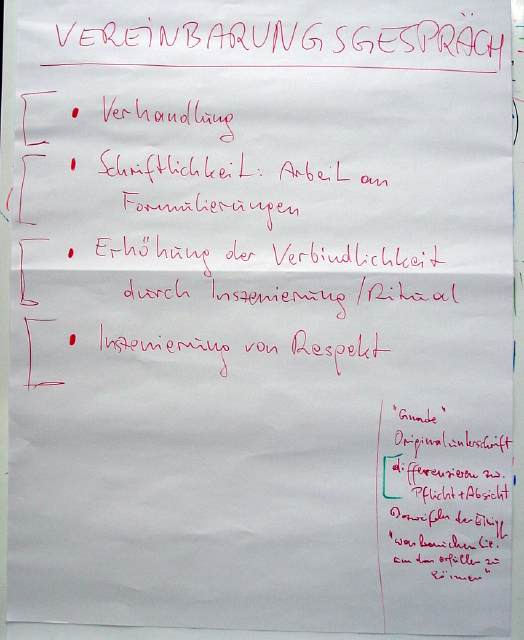 VEREINBARUNGSGESPRÄCH
• Verhandlung
• Schriftlichkeit: Arbeit an
Formulierungen
• Erhöhung der Verbindlichkeit
durch Inszenierung/Ritual
• Inszenierung von Respekt
Originalunterschrift
differenzieren zw.
Pflicht+Absicht
der
"was brauchen Sie,
um das erfüllen zu
können"